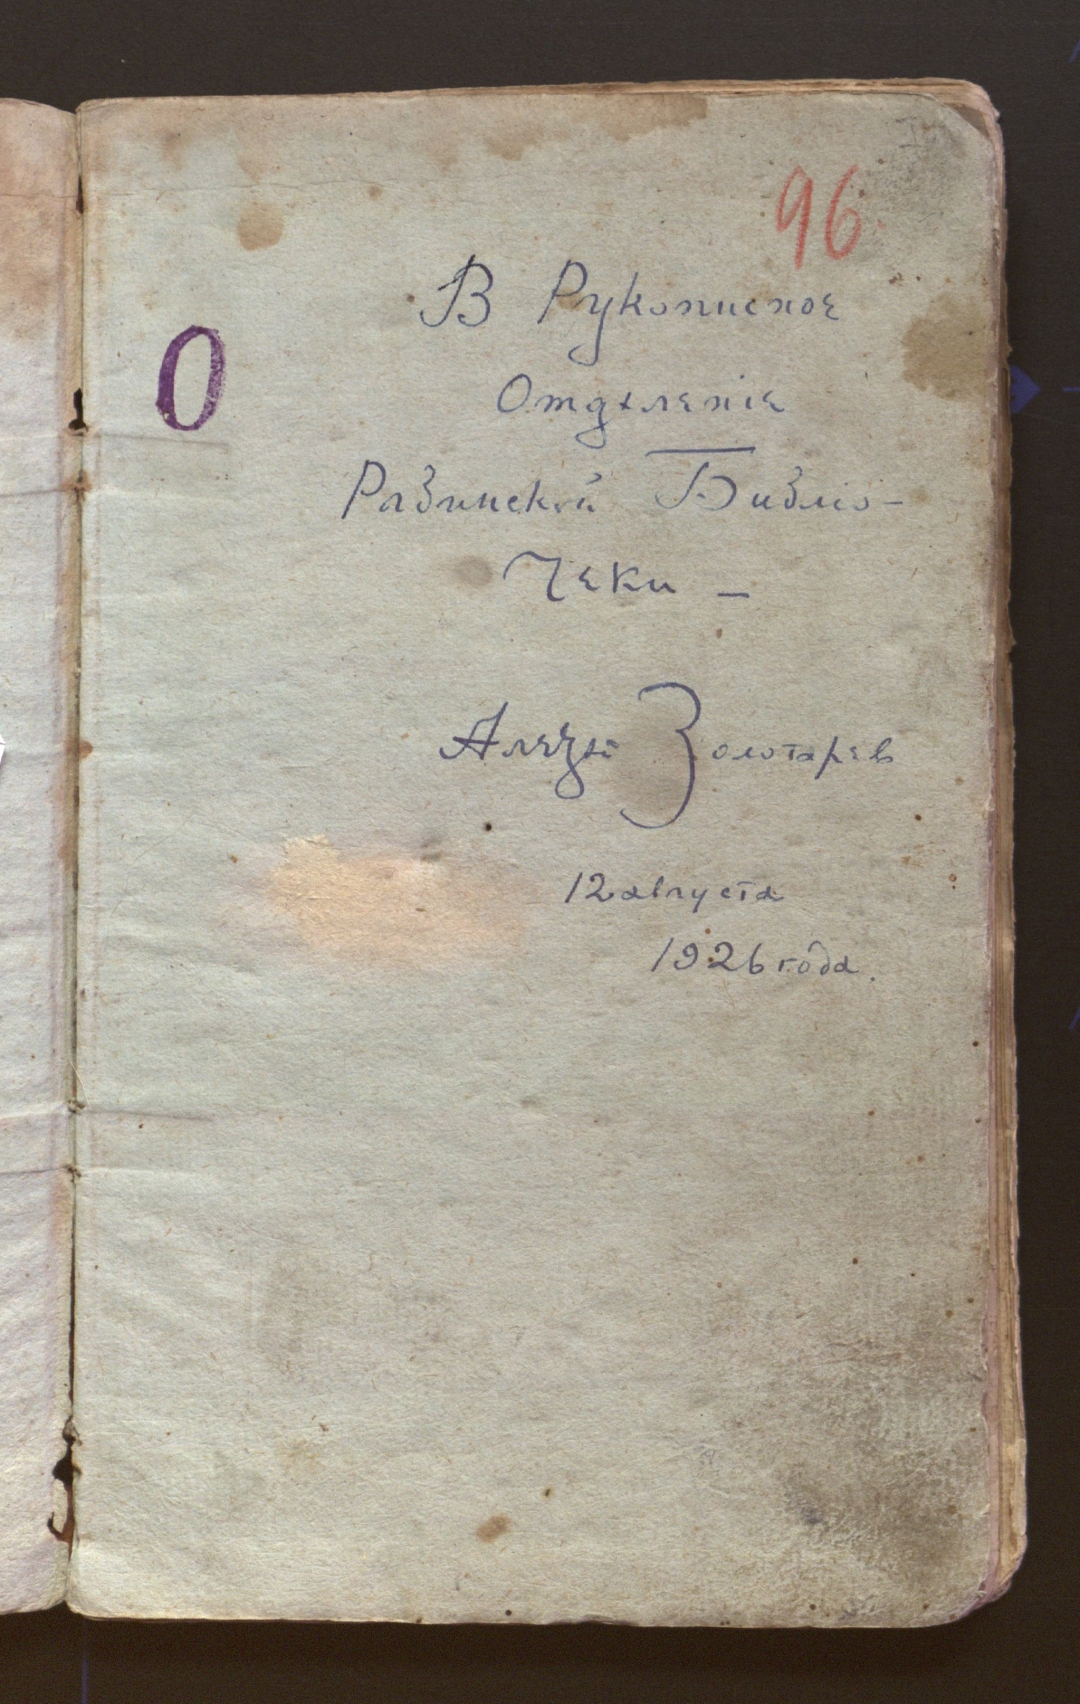 96.
В Рукописное
0
Отдѣленіе
Рязанской Библіо-
теки —
Алексѣй Золотарев
12 августа
1926 года.